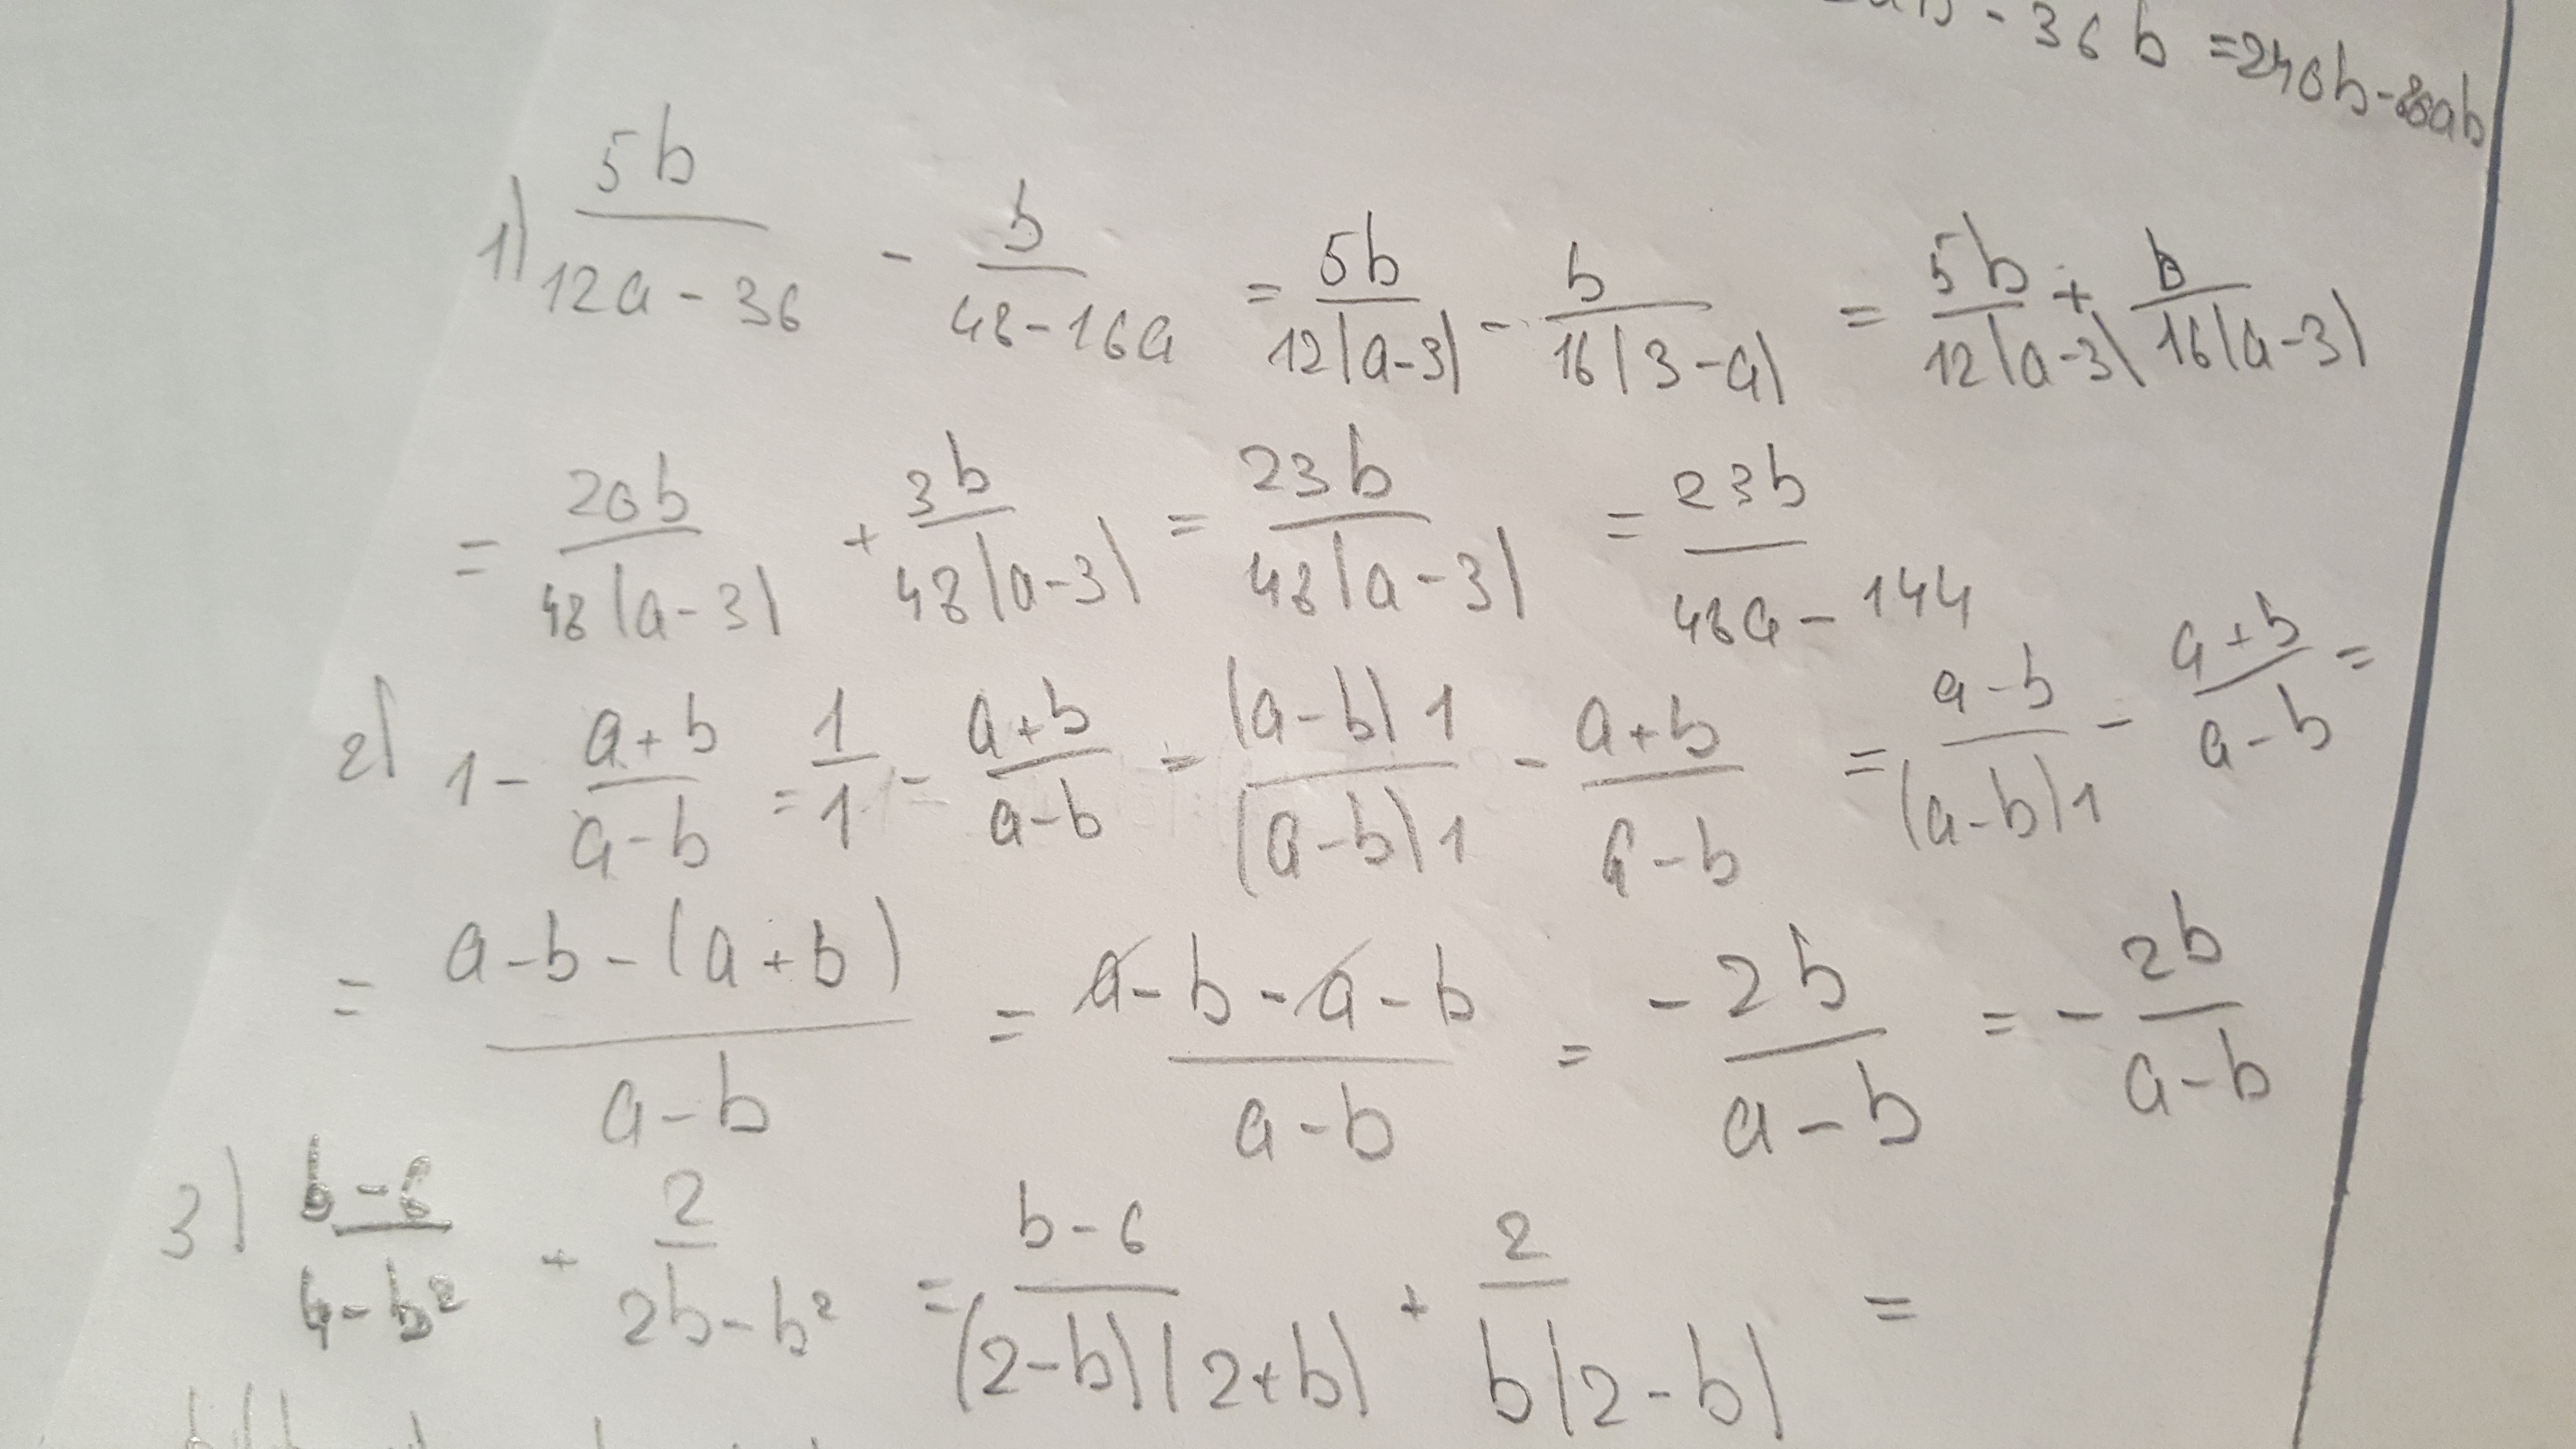 - 36 b = 240b - 80ab
1) 5b/(12a - 36) - b/(48 - 16a) = 5b/(12(a-3)) - b/(16(3-a)) = 5b/(12(a-3)) + b/(16(a-3))
= 20b/(48(a-3)) + 3b/(48(a-3)) = 23b/(48(a-3)) = 23b/(48a - 144)
2) 1 - (a+b)/(a-b) = 1/1 - (a+b)/(a-b) = (a-b)1/((a-b)1) - (a+b)/(a-b) = (a-b)/((a-b)1) - (a+b)/(a-b) =
= (a-b-(a+b))/(a-b) = (a-b-a-b)/(a-b) = -2b/(a-b) = - 2b/(a-b)
3) (b-6)/(4-b²) + 2/(2b-b²) = (b-6)/((2-b)(2+b)) + 2/(b(2-b)) =